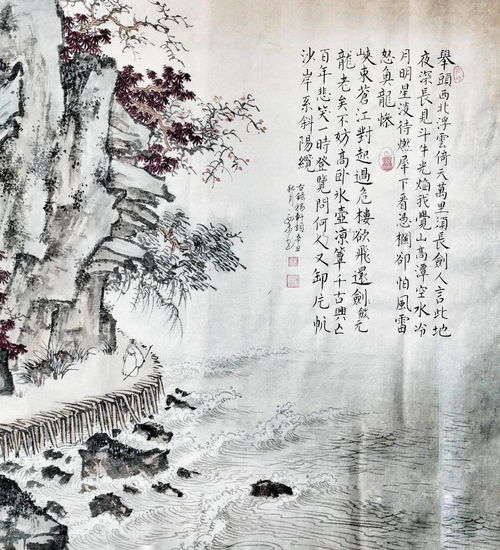 舉頭西北浮雲倚天萬里須長劍人言此地
夜深長見斗牛光焰我覺山高潭空水冷
月明星淡待燃犀下看憑欄卻怕風雷
怒魚龍慘
峽束蒼江對起過危樓欲飛還劍斂元
龍老矣不妨高臥冰壺涼簟千古興亡
百年悲笑一時登覽問何人又卸片帆
沙岸系斜陽纜
右錄稼軒詞辛丑
秋月